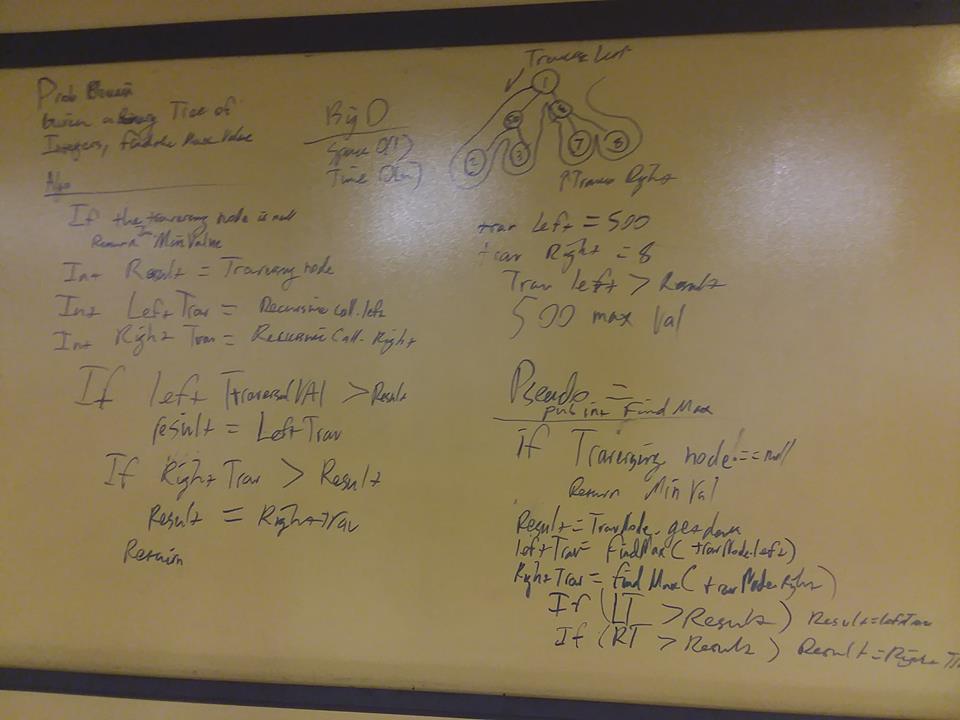 Prob
Given a Binary Tree of
Integers, Find the Max Value
Algo
If the traversing node is null
Return Int Min Value
Int Result = Traversing node
Int Left Trav = Recursive call.left
Int Right Trav = Recursive Call.Right
If left Traversal VAl > Result
result = Left Trav
If Right Trav > Result
Result = Right trav
Return
Big O
Space O(1)
Time O(n)
Traverse Left
1
500
2
3
7
8
Travers Right
trav Left = 500
trav Right = 8
Trav left > Result
500 max Val
Pseudo =
pub int Find Max
if Traversing node == null
Return Min Val
Result = TravNode.
left Trav = FindMax( travNode.left)
Right Trav = Find Max( travNode.Right)
If (LT > Result) Result = left Trav
If (RT > Result) Result = Right